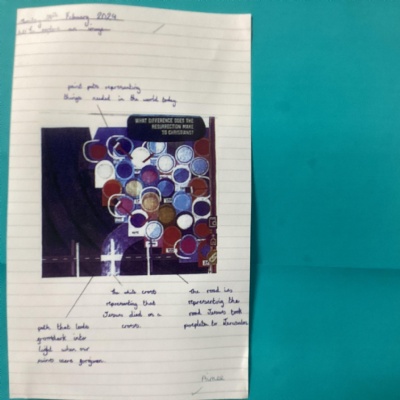 February 2024
paint pots representing
things needed in the world today.
WHAT DIFFERENCE DOES THE
RESURRECTION MAKE
TO CHRISTIANS?
the white cross
representing that
Jesus died on a
cross.
the road is
representing the
road Jesus took
to Jerusalem.
path that leads
from dark into
light when our
were forgiven.